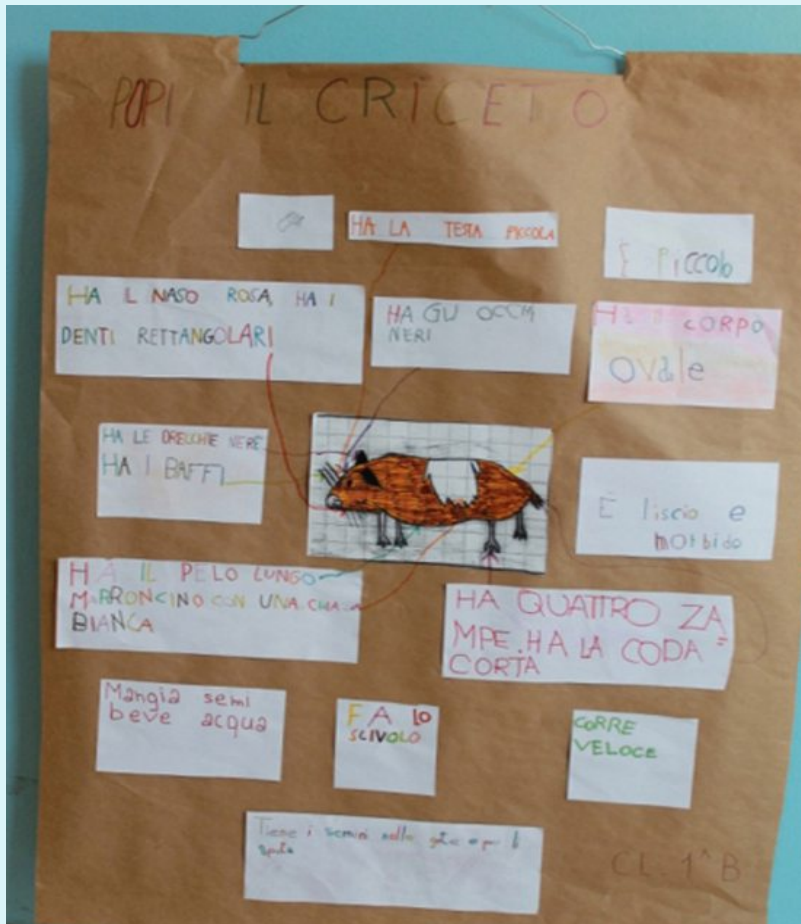 POPI IL CRICETO
HA LA TESTA PICCOLA
È PiCCOLO
HA IL NASO ROSA, HA I
DENTI RETTANGOLARI
HA GLI OCCHI
NERI
HA IL CORPO
OVale
HA LE ORECCHIE NERE
HA I BAFFI
È liscio e
morbido
HA IL PELO LUNGO
MARRONCINO CON UNA
BIANCA
HA QUATTRO ZA
MPE. HA LA CODA =
CORTA
Mangia semi
beve acqua
FA lo
SCIVOLO
CORRE
VELOCE
Tiene i semini nelle
CL. 1^B